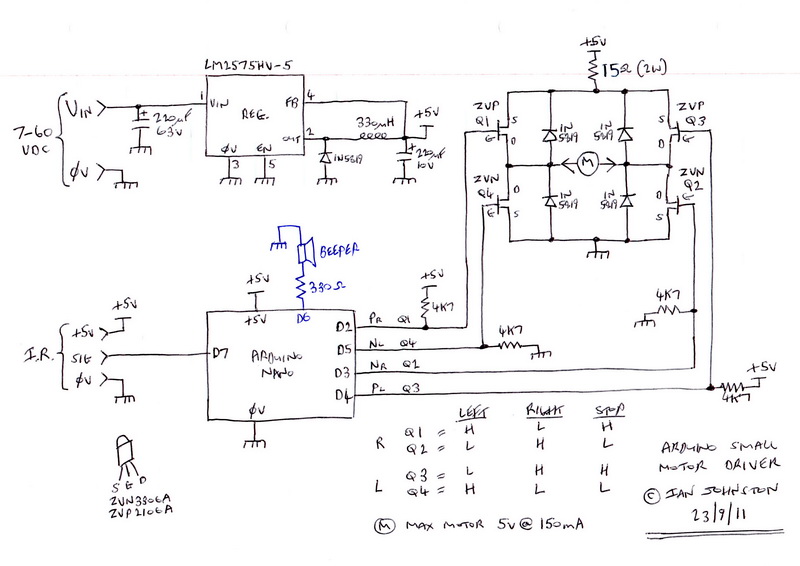 LM2575HV-5
7-60 VDC
VIN
1
VIN
REG.
FB
4
OUT
2
ØV
EN
3
5
220µF
63V
330µH
+5V
IN5819
220µF
10V
ØV
+5V
15Ω (2W)
ZVP
Q1
S
G
D
IN
5819
IN
5819
S
G
D
ZVP
Q3
M
ZVN
Q4
D
G
S
IN
5819
IN
5819
D
G
S
ZVN
Q2
BEEPER
330Ω
+5V
+5V
D6
ARDUINO
NANO
D7
ØV
D2
D5
D3
D4
I.R.
+5V
+5V
SIG
ØV
PR Q1
NL Q4
NR Q2
PL Q3
+5V
4K7
4K7
4K7
+5V
4K7
LEFT RIGHT STOP
R Q1 = H L H
Q2 = L H L
L Q3 = L H H
Q4 = H L L
M MAX MOTOR 5V @ 150mA
S G D
ZVN3306A
ZVP2106A
ARDUINO SMALL
MOTOR DRIVER
© IAN JOHNSTON
23/9/11